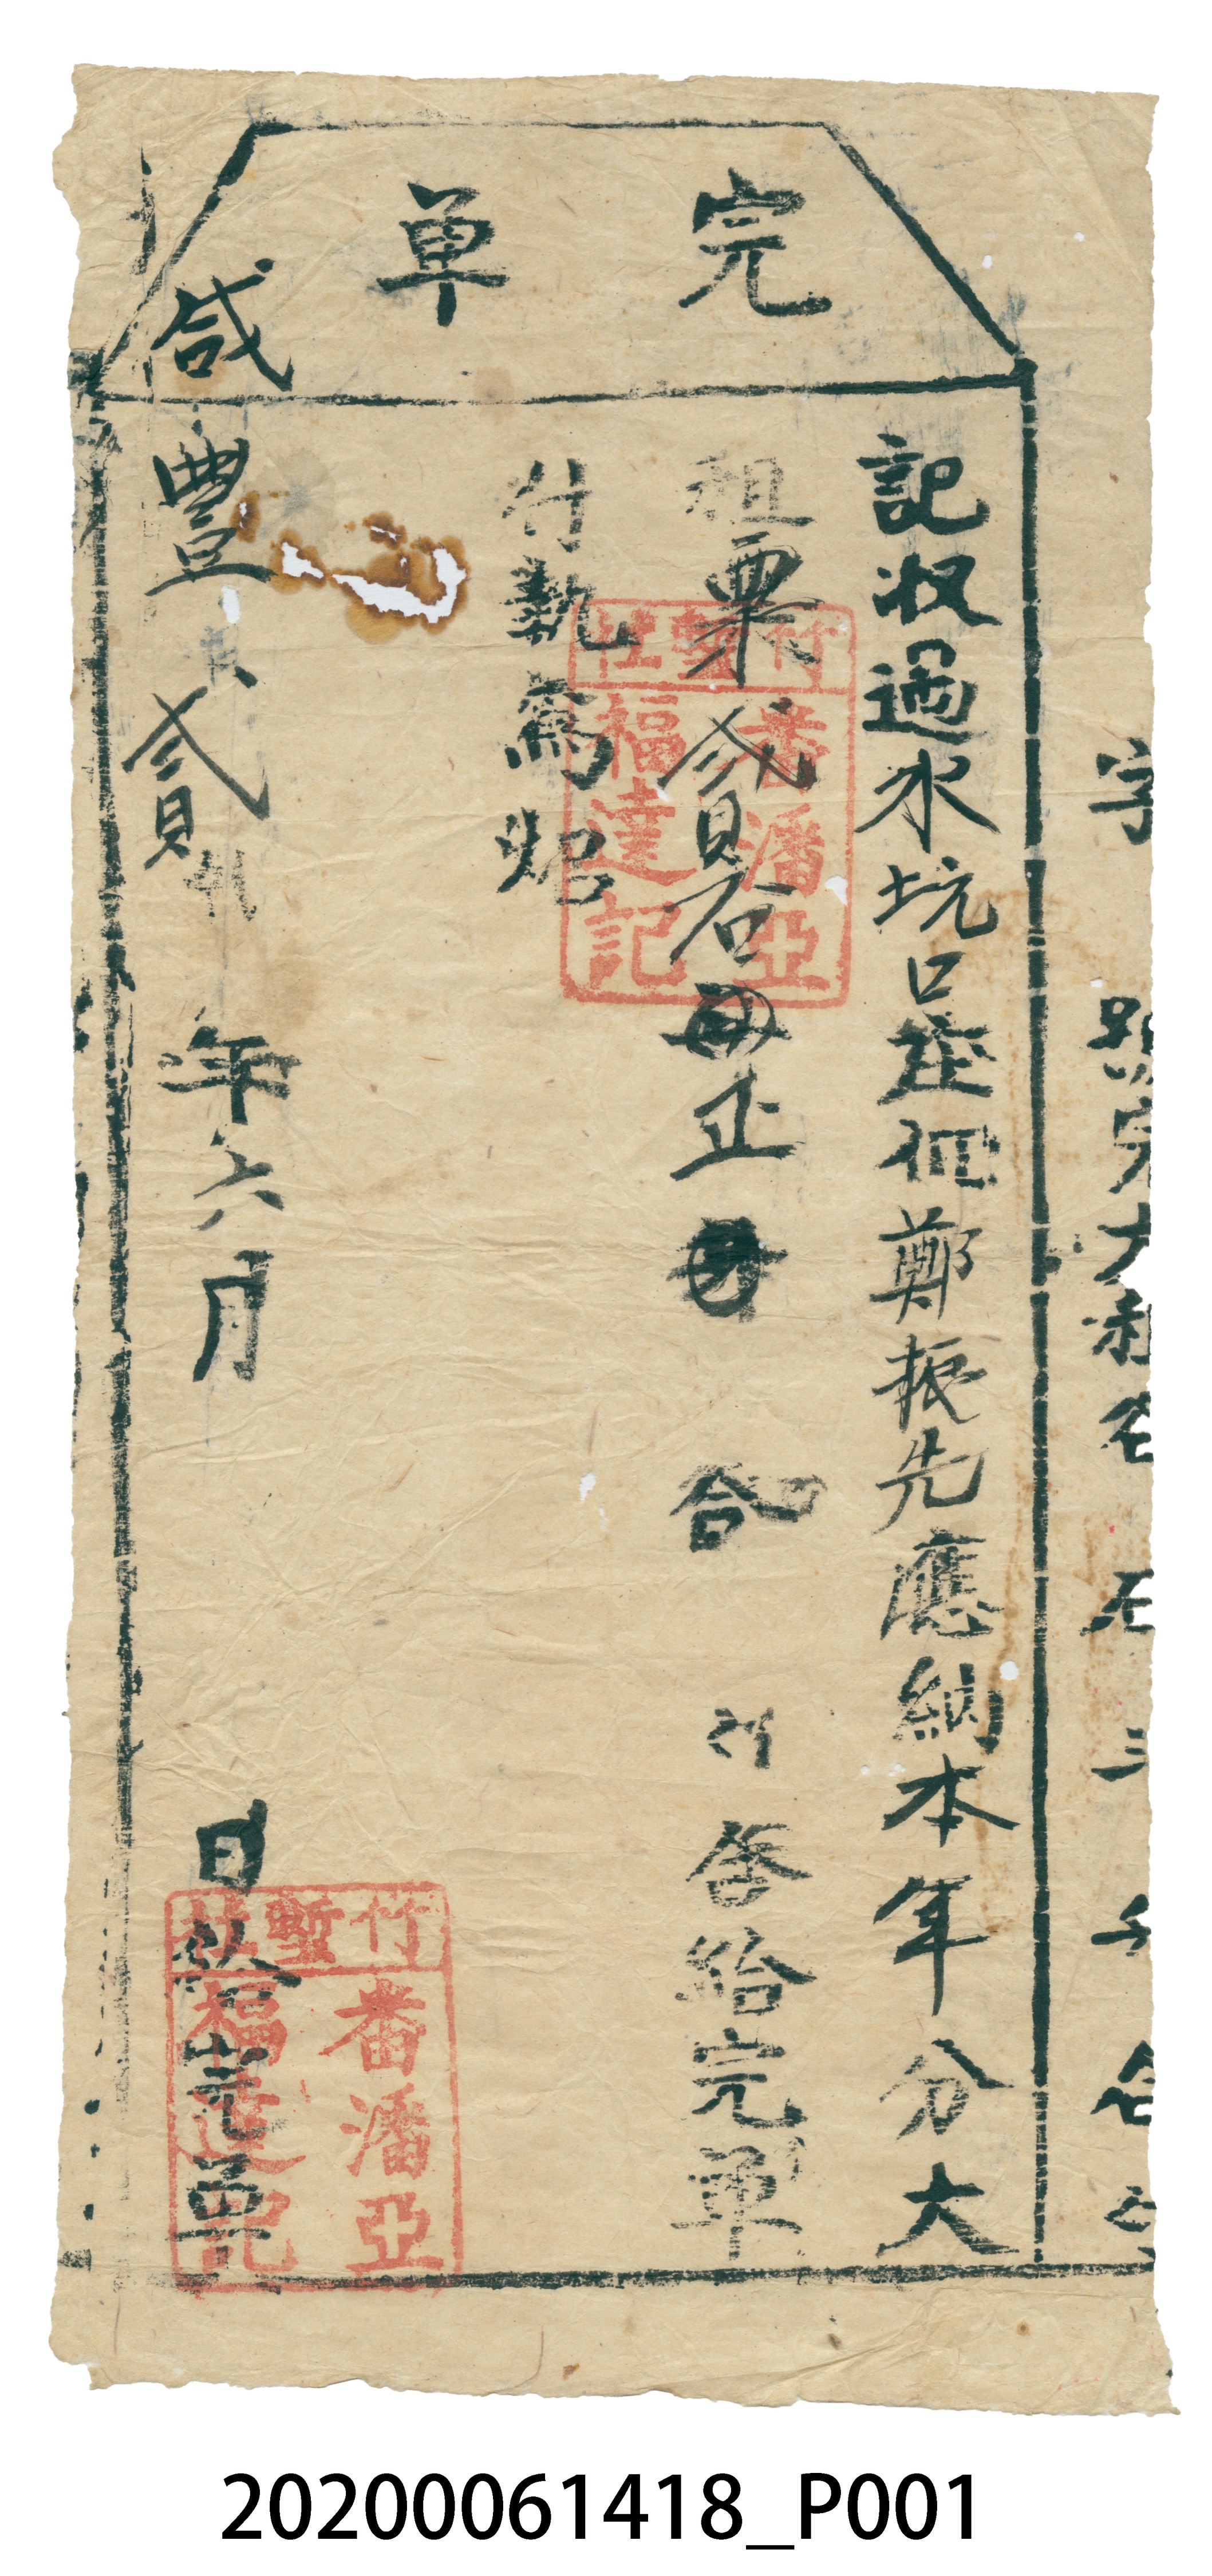 完單
字 號完大租谷 石 三
記收過水坑口庄佃鄭振先應納本年分大
租粟貳石正 合 給完單
付執為炤
咸豐貳年六月 日給完單
竹塹社
番潘亞
福達記
竹塹社
番潘亞
福達記
20200061418_P001